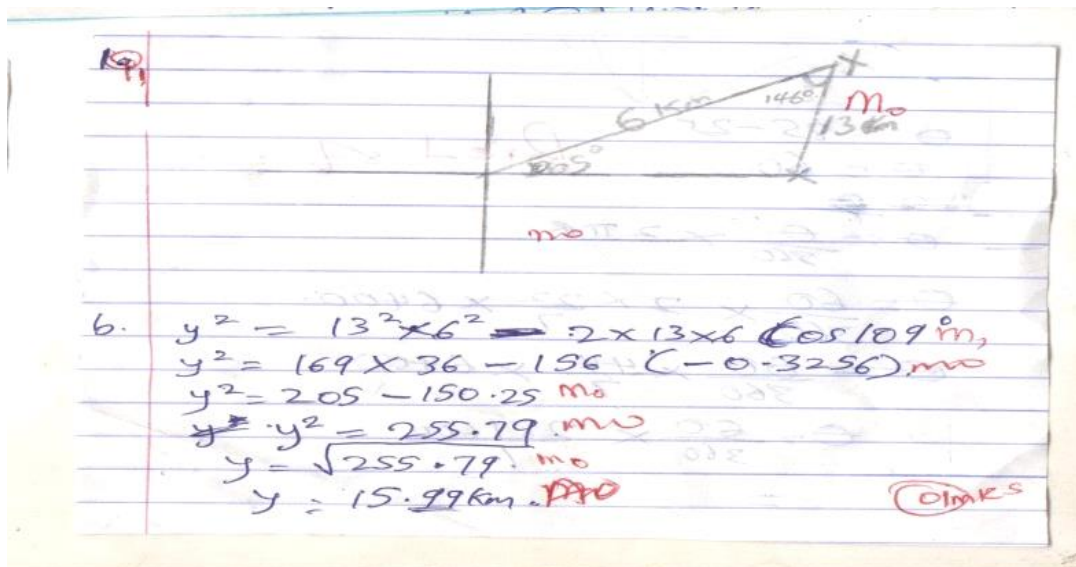 X
6 Km
146°
Mo
13 Km
05°
X
mo
b. y² = 13² × 6² - 2 × 13 × 6 Cos 109° m,
y² = 169 × 36 - 156 (-0.3256) mo
y² = 205 - 150.25 mo
y² = 255.79. mo
y = √255.79. mo
y = 15.99 Km. mo
01mks